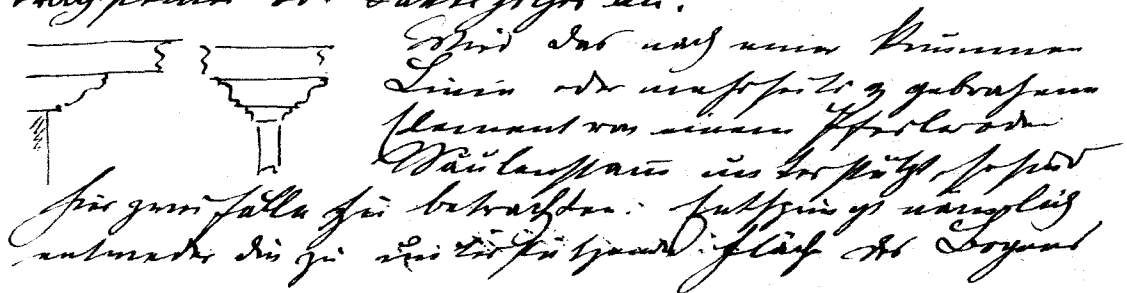 Wird das nach einer krummen
Linie oder mehrseitig gebrochene
Element von einem Pfeiler oder
Säulenstamm unterstützt, so sind
hier zwei Fälle zu betrachten: Entspringt nämlich
entweder die zu unterstützende Fläche des Bogens